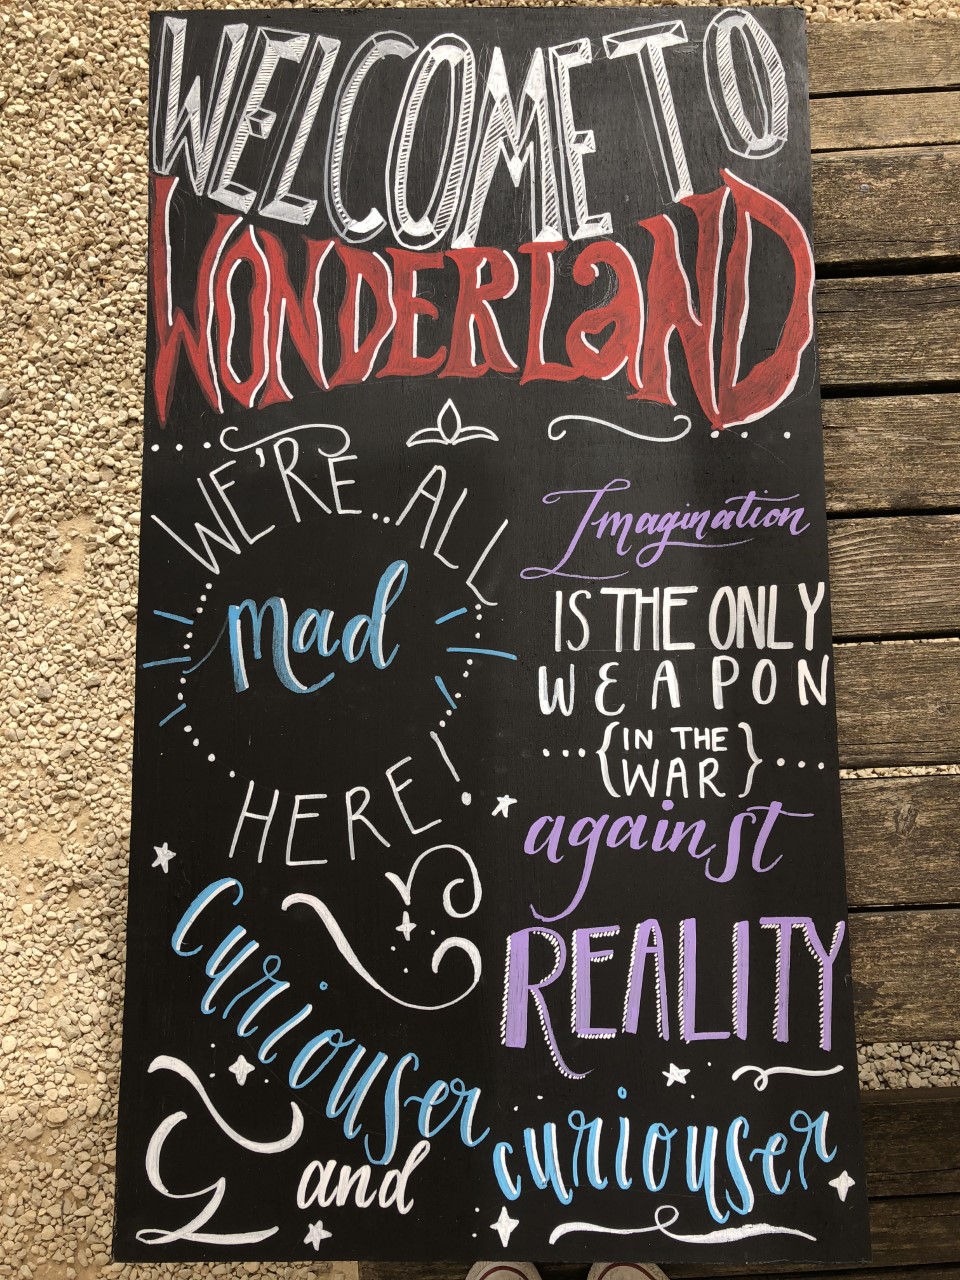 WELCOME TO
WONDERLaND
WE'RE.. ALL
mad
HERE!
Imagination
IS THE ONLY
WEAPON
...{IN THE
WAR}...
against
REALITY
Curiouser
and
curiouser